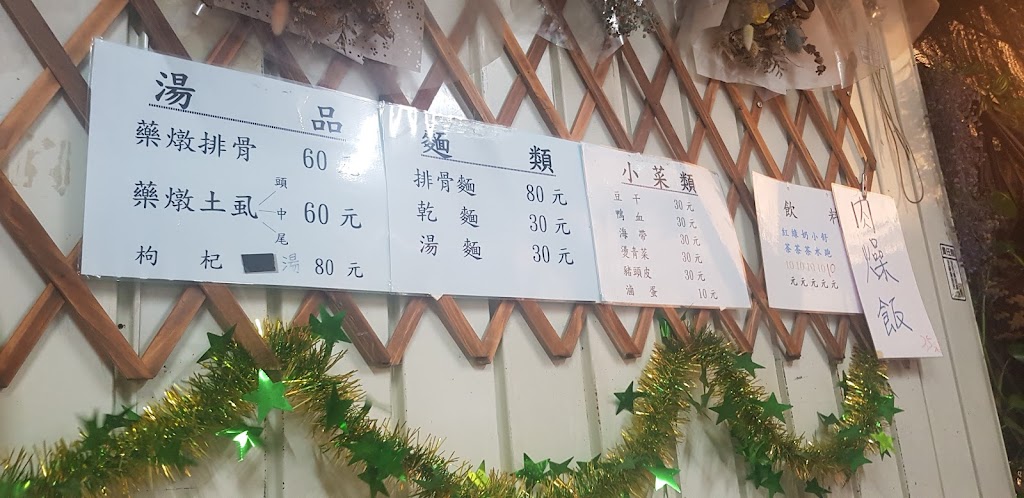 湯品
藥燉排骨 60 元
藥燉土虱 頭 中 尾 60 元
枸杞 湯 80 元
麵類
排骨麵 80 元
乾麵 30 元
湯麵 30 元
小菜類
豆干 30 元
鴨血 30 元
海帶 30 元
燙青菜 30 元
豬頭皮 30 元
滷蛋 10 元
飲料
紅茶 10 元
綠茶 10 元
奶茶 20 元
小水 10 元
舒跑 10 元
肉燥飯
25